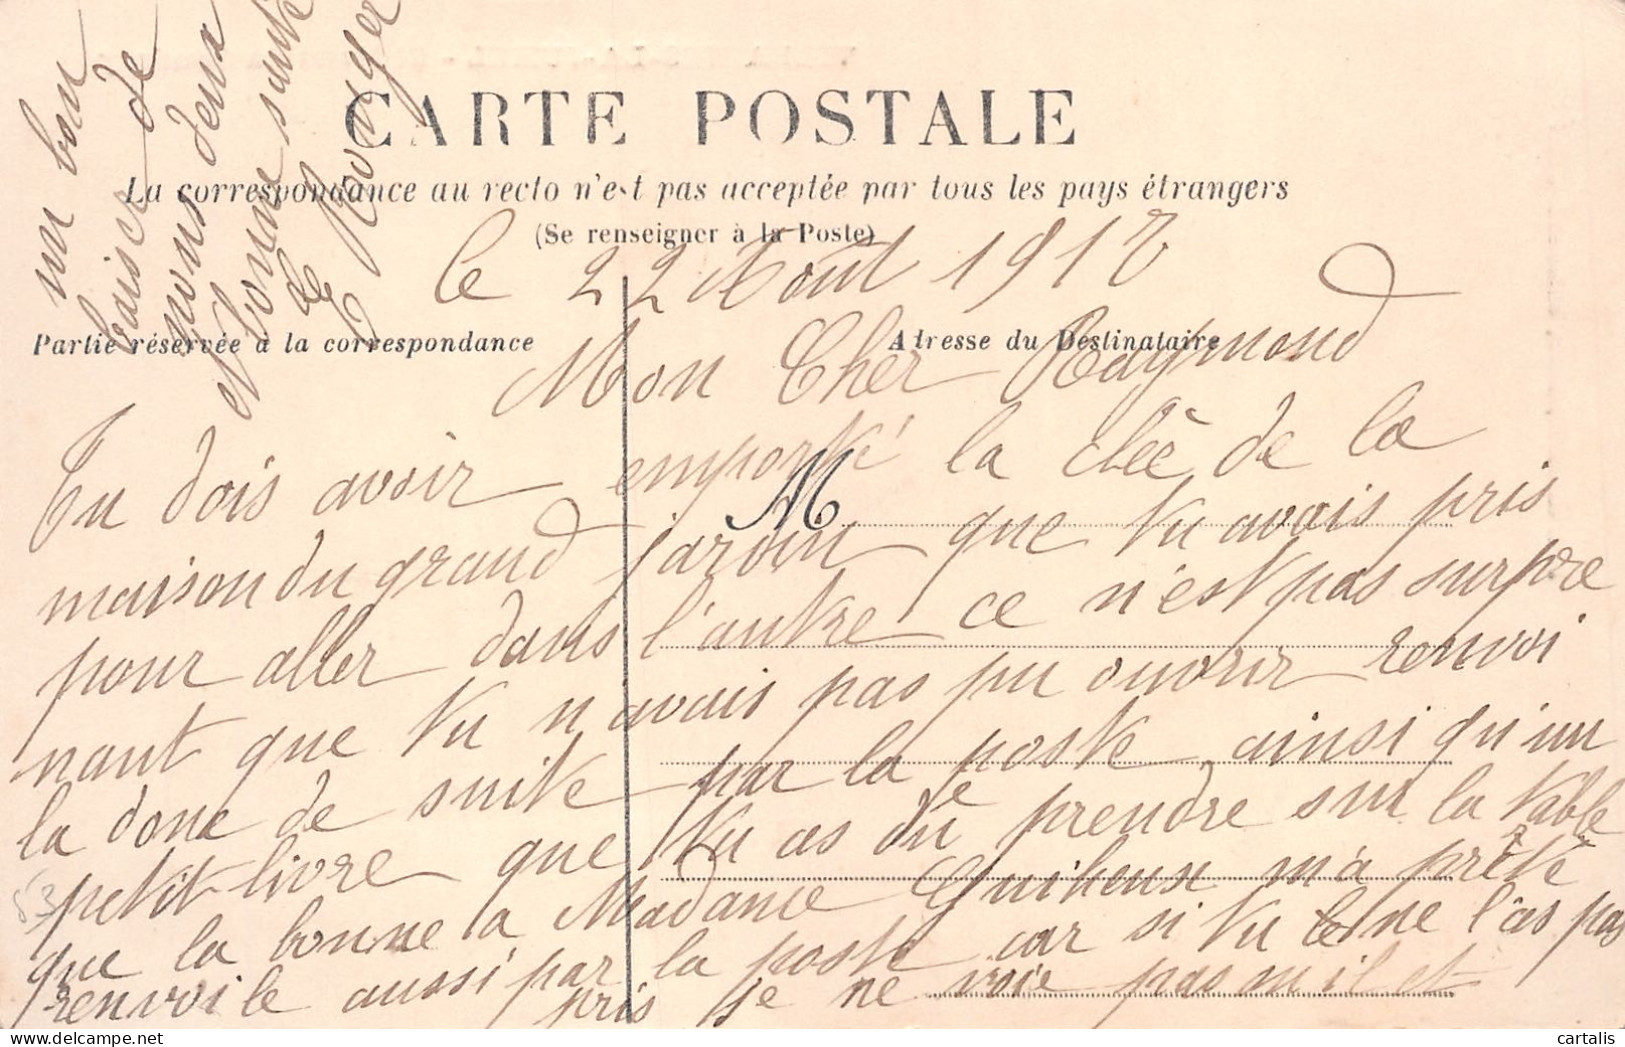 un bon
baiser de
nous deux
Bonne santé
de Rouger
CARTE POSTALE
La correspondance au recto n'est pas acceptée par tous les pays étrangers
(Se renseigner à la Poste)
le 22 Août 1917
Partie réservée à la correspondance
Adresse du Destinataire
Mon Cher Raymond
Tu dois avoir emporté la cleè de la
M
maison du grand jardin que tu avais pris
pour aller dans l'autre ce n'est pas surpre
nant que tu n'avais pas pu ouvrir renvoi
la donc de suite par la poste ainsi qu'un
petit livre que tu as du prendre sur la table
que la bonne a Madame m'a prêtè
renvoi le aussi par la poste car si tu ne l'as pas
pris je ne voie pas ou il et
cartalis
delcampe.net